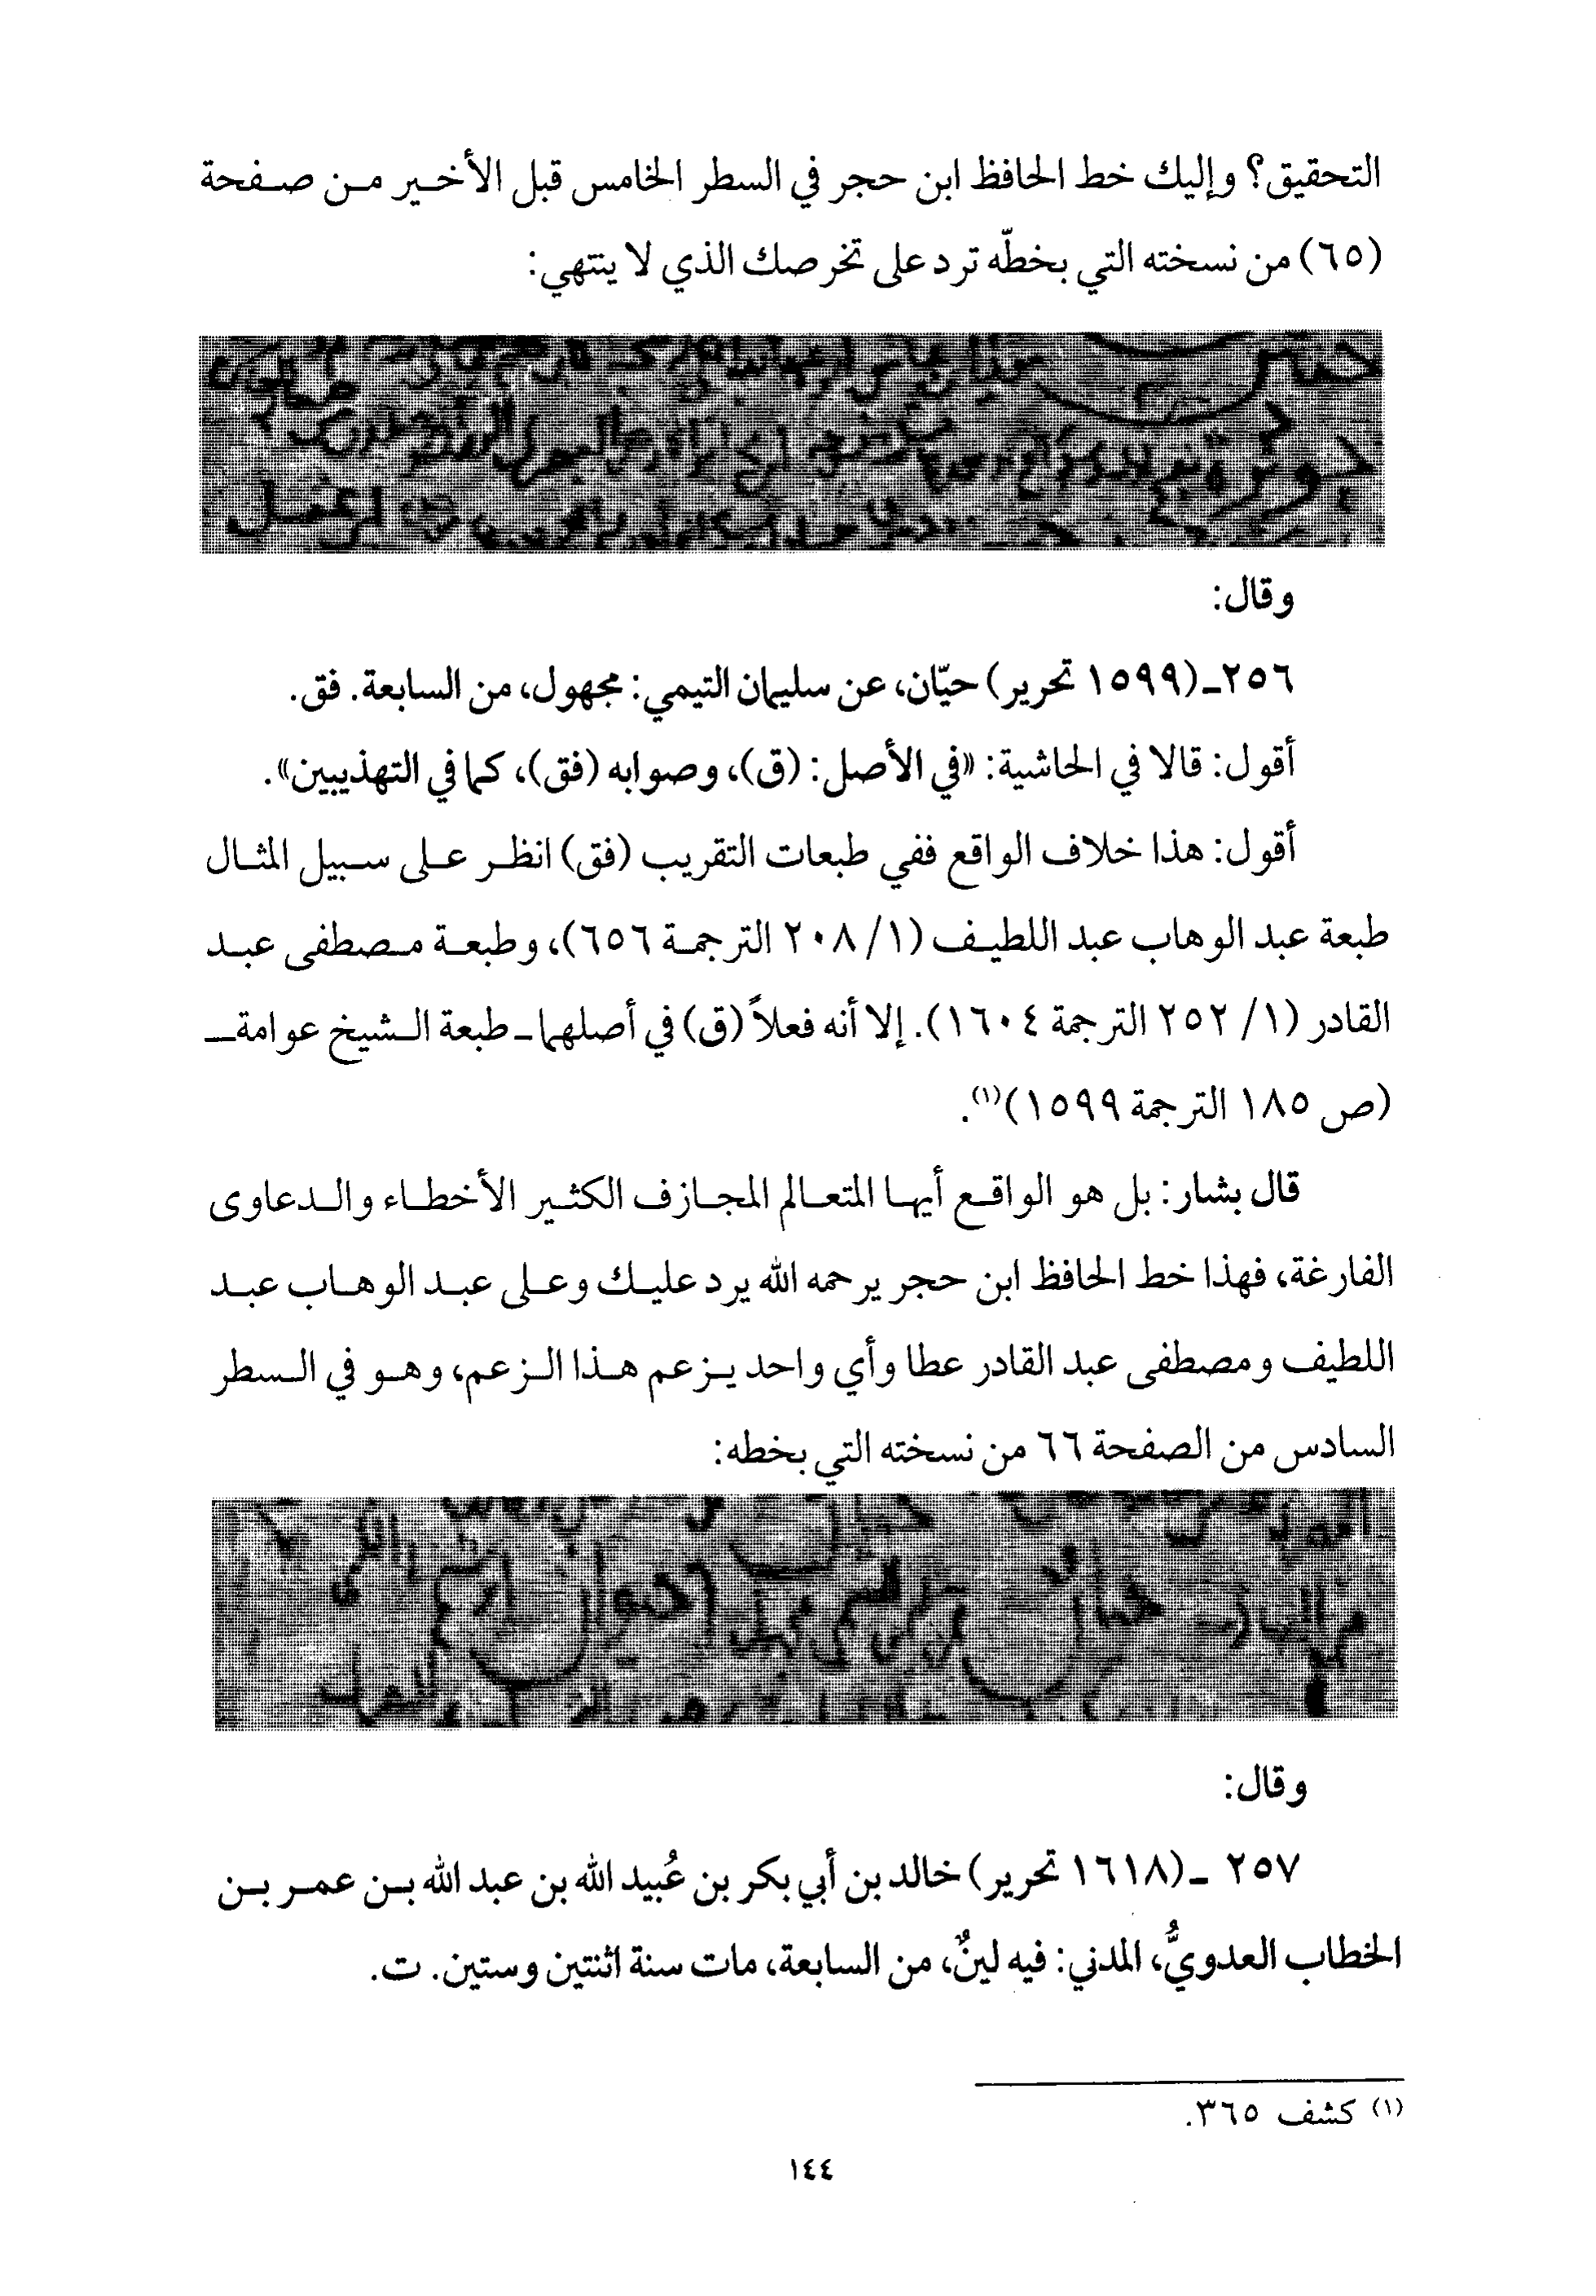 التحقيق؟ وإليك خط الحافظ ابن حجر في السطر الخامس قبل الأخير من صفحة
(٦٥) من نسخته التي بخطّه ترد على تخرصك الذي لا ينتهي:
وقال:
٢٥٦ـ(١٥٩٩ تحرير) حيّان، عن سليمان التيمي: مجهول، من السابعة. فق.
أقول: قالا في الحاشية: «في الأصل: (ق)، وصوابه (فق)، كما في التهذيبين».
أقول: هذا خلاف الواقع ففي طبعات التقريب (فق) انظر على سبيل المثال
طبعة عبد الوهاب عبد اللطيف (١/ ٢٠٨ الترجمة ٦٥٦)، وطبعة مصطفى عبد
القادر (١/ ٢٥٢ الترجمة ١٦٠٤). إلا أنه فعلاً (ق) في أصلهما ـ طبعة الشيخ عوامة ـ
(ص ١٨٥ الترجمة ١٥٩٩)(١).
قال بشار: بل هو الواقع أيها المتعالم المجازف الكثير الأخطاء والدعاوى
الفارغة، فهذا خط الحافظ ابن حجر يرحمه الله يرد عليك وعلى عبد الوهاب عبد
اللطيف ومصطفى عبد القادر عطا وأي واحد يزعم هذا الزعم، وهو في السطر
السادس من الصفحة ٦٦ من نسخته التي بخطه:
وقال:
٢٥٧ ـ(١٦١٨ تحرير) خالد بن أبي بكر بن عُبيد الله بن عبد الله بن عمر بن
الخطاب العدويُّ، المدني: فيه لينٌ، من السابعة، مات سنة اثنتين وستين. ت.
(١) كشف ٣٦٥.
١٤٤